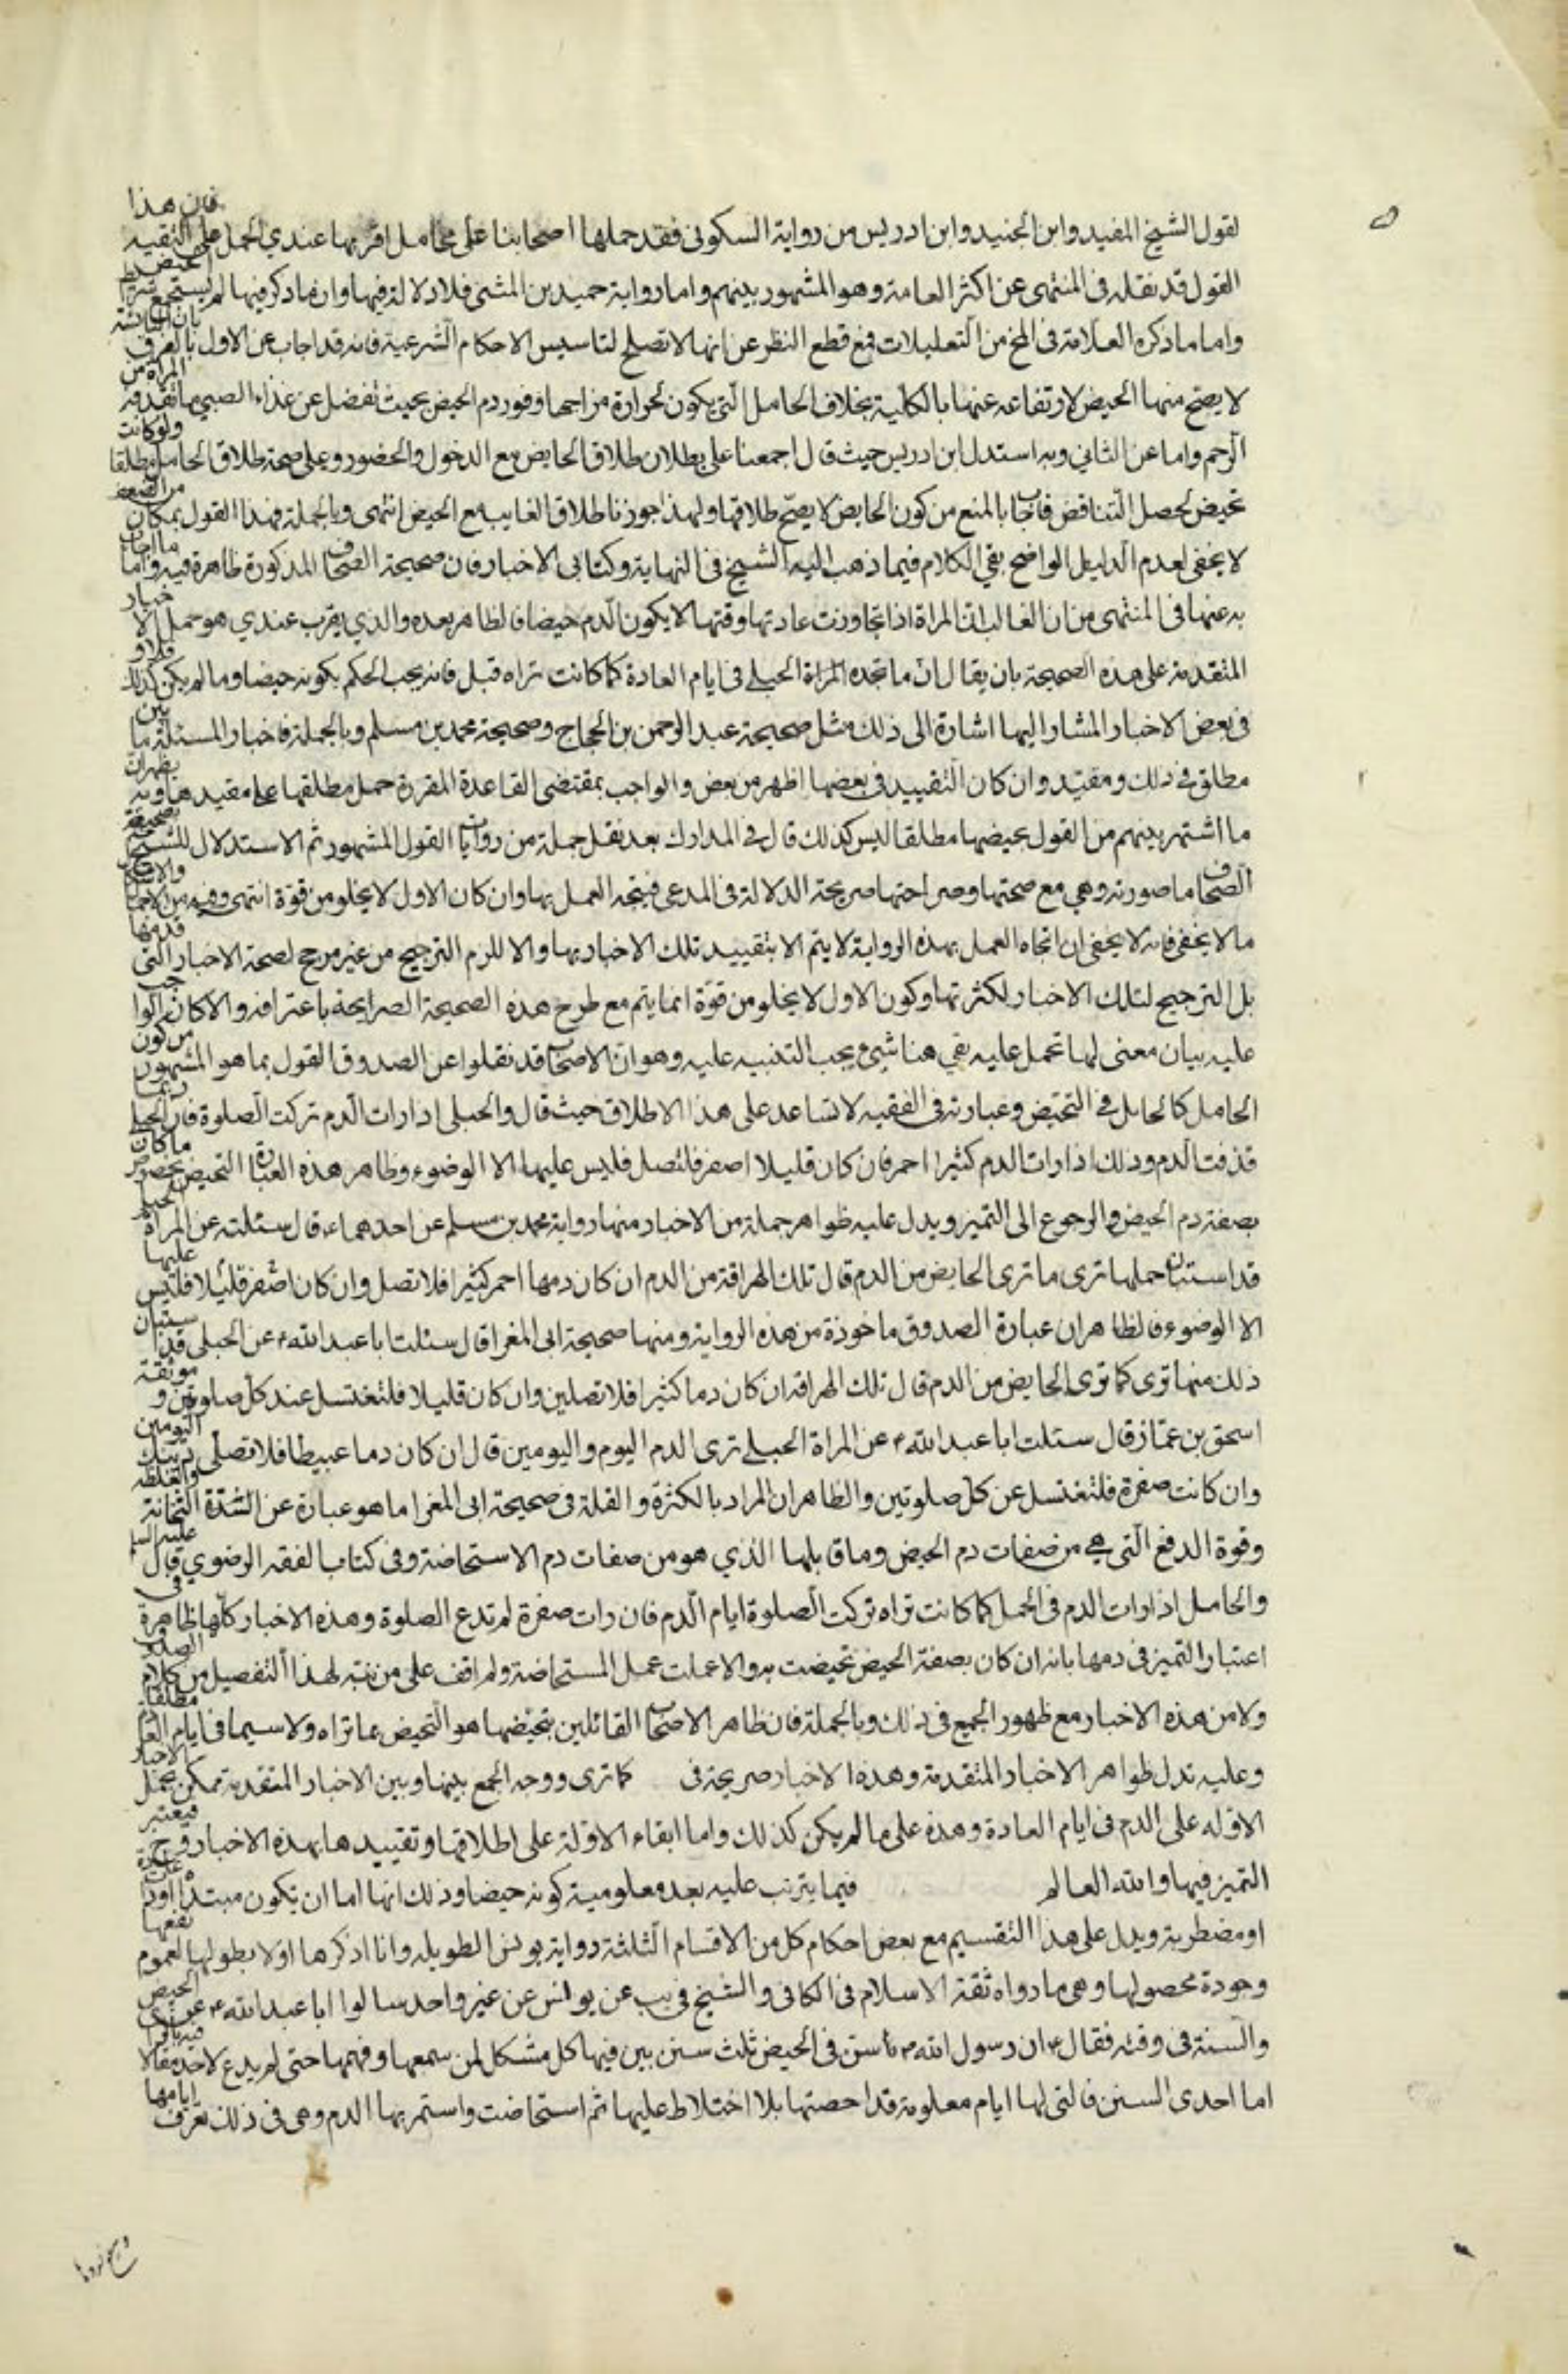 لقول الشيخ المفيد وابن الجنيد وابن ادريس من رواية السكونى فقد حملها اصحابنا على محامل اقربها عندي الحمل على التقيه فان هذا
القول قد نقله فى المنتهى عن اكثر العامة وهو المشهور بينهم واما رواية حميد بن المثنى فلا دلالة فيها وان ما ذكر فيها لم يستجمع شرايط الحيض
واما ما ذكره العلامة فى المخ من التعليلات فمع قطع النظر عن انها لا تصلح لتاسيس الاحكام الشرعية فانه قد اجاب عن الاول بالفرق بان اليائسة
لا يصح منها الحيض لارتفاعه عنها بالكلية بخلاف الحامل التى يكون لحرارة مزاجها وفور دم الحيض بحيث تفضل عن غذاء الصبي ما تقذفه المراة من
الرحم واما عن الثاني وبه استدل ابن ادريس حيث قال اجمعنا على بطلان طلاق الحايض مع الدخول والحضور وعلى صحة طلاق الحامل مطلقا ولو كانت
تحيض لحصل التناقض فاجاب بالمنع من كون الحايض لا يصح طلاقها ولهذا جوزنا طلاق الغايب مع الحيض انتهى وبالجملة فهذا القول بمكان من الضعف
لا يخفى لعدم الدليل الواضح بقي الكلام فيما ذهب اليه الشيخ فى النهاية وكتابى الاخبار فان صحيحة الصحاف المذكورة ظاهرة فيه واما ما اجاب
به عنها فى المنتهى من ان الغالب ان المراة اذا تجاوزت عادتها وقتها لا يكون الدم حيضا فالظاهر بعده والذي يقرب عندي هو حمل الاخبار
المتقدمة على هذه الصحيحة بان يقال ان ما تجده المراة الحبلى فى ايام العادة كما كانت تراه قبل فانه يجب الحكم بكونه حيضا وما لم يكن كذلك فلا و
فى بعض الاخبار المشار اليها اشارة الى ذلك مثل صحيحة عبد الرحمن بن الحجاج وصحيحة محمد بن مسلم وبالجملة فاخبار المسئلة ما بين
مطلق فى ذلك ومقيد وان كان التقييد فى بعضها اظهر من بعض والواجب بمقتضى القاعدة المقررة حمل مطلقها على مقيدها وبه يظهر ان
ما اشتهر بينهم من القول بحيضها مطلقا ليس كذلك قال فى المدارك بعد نقل جملة من روايات القول المشهور ثم الاستدلال للشيخ بصحيحة
الصحاف ما صورته وهي مع صحتها وصراحتها صريحة الدلالة فى المدعى فيتجه العمل بها وان كان الاول لا يخلو من قوة انتهى وفيه من الاجمال والاشكال
ما لا يخفى فانه لا يخفى ان اتجاه العمل بهذه الرواية لا يتم الا بتقييد تلك الاخبار بها والا للزم الترجيح من غير مرجح لصحة الاخبار التى قدمها
بل الترجيح لتلك الاخبار لكثرتها وكون الاول لا يخلو من قوة انما يتم مع طرح هذه الصحيحة الصرايحة باعترافه والا كان الواجب
عليه بيان معنى لها تحمل عليه بقي هنا شيء يجب التنبيه عليه وهو ان الاصحاب قد نقلوا عن الصدوق القول بما هو المشهور من كون
الحامل كالحايل فى التحيض وعبارته فى الفقيه لا تساعد على هذا الاطلاق حيث قال والحبلى اذا رات الدم تركت الصلوة فان الحبلى ربما
قذفت الدم وذلك اذا رات الدم كثيرا احمر فان كان قليلا اصفر فلتصل فليس عليها الا الوضوء وظاهر هذه العبارة التحيض بخصوص ما كان
بصفة دم الحيض والرجوع الى التميز ويدل عليه ظواهر جملة من الاخبار منها رواية محمد بن مسلم عن احدهما ع قال سئلته عن المراة الحبلى
قد استبان حملها ترى ما ترى الحايض من الدم قال تلك الهراقة من الدم ان كان دمها احمر كثيرا فلا تصل وان كان اصفر قليلا فليس عليها
الا الوضوء فالظاهر ان عبارة الصدوق ماخوذة من هذه الرواية ومنها صحيحة ابى المغرا قال سئلت ابا عبد الله ع عن الحبلى قد استبان
ذلك منها ترى كما ترى الحايض من الدم قال تلك الهراقة ان كان دما كثيرا فلا تصلين وان كان قليلا فلتغتسل عند كل صلوتين و موثقة
اسحق بن عمار قال سئلت ابا عبد الله ع عن المراة الحبلى ترى الدم اليوم واليومين قال ان كان دما عبيطا فلا تصلى ذينك اليومين
وان كانت صفرة فلتغتسل عن كل صلوتين والظاهر ان المراد بالكثرة والقلة فى صحيحة ابى المغرا ما هو عبارة عن الشدة الثخانة والغلظة
وقوة الدفع التى هي من صفات دم الحيض وما قابلها الذي هو من صفات دم الاستحاضة وفى كتاب الفقه الرضوي قال عليه السلم
والحامل اذا رات الدم فى الحمل كما كانت تراه تركت الصلوة ايام الدم فان رات صفرة لم تدع الصلوة وهذه الاخبار كلها ظاهرة فى
اعتبار التميز فى دمها بانه ان كان بصفة الحيض تحيضت به والا عملت عمل المستحاضة ولم اقف على من تنبه لهذا التفصيل من كلام الصدوق
ولا من هذه الاخبار مع ظهور الجميع فى ذلك وبالجملة فان ظاهر الاصحاب القائلين بتحيضها هو التحيض بما تراه ولا سيما فى ايام العادة مطلقا
وعليه تدل ظواهر الاخبار المتقدمة وهذه الاخبار صريحة فى كما ترى ووجه الجمع بينها وبين الاخبار المتقدمة تمكن بحمل الاخبار
الاوله على الدم فى ايام العادة وهذه على ما لم يكن كذلك واما ابقاء الاولة على اطلاقها وتقييدها بهذه الاخبار وح فيعتبر
التميز فيها والله العالم فيما يترتب عليه بعد معلومية كونه حيضا وذلك انها اما ان تكون مبتداة او ذات عادة
او مضطربة ويدل على هذا التقسيم مع بعض احكام كل من الاقسام الثلثة رواية يونس الطويله وانا اذكرها اولا بطولها لعموم نفعها
وجودة محصولها وهى ما رواه ثقة الاسلام فى الكافى والشيخ فى يب عن يونس عن غير واحد سالوا ابا عبد الله ع عن الحيض
والسنة فى وقته فقال ع ان رسول الله ص سن فى الحيض ثلث سنن بين فيها كل مشكل لمن سمعها وفهمها حتى لم يدع لاحد مقالا فيه بالراى
اما احدى السنن فالتى لها ايام معلومة قد احصتها بلا اختلاط عليها ثم استحاضت واستمر بها الدم وهى فى ذلك تعرف ايامها